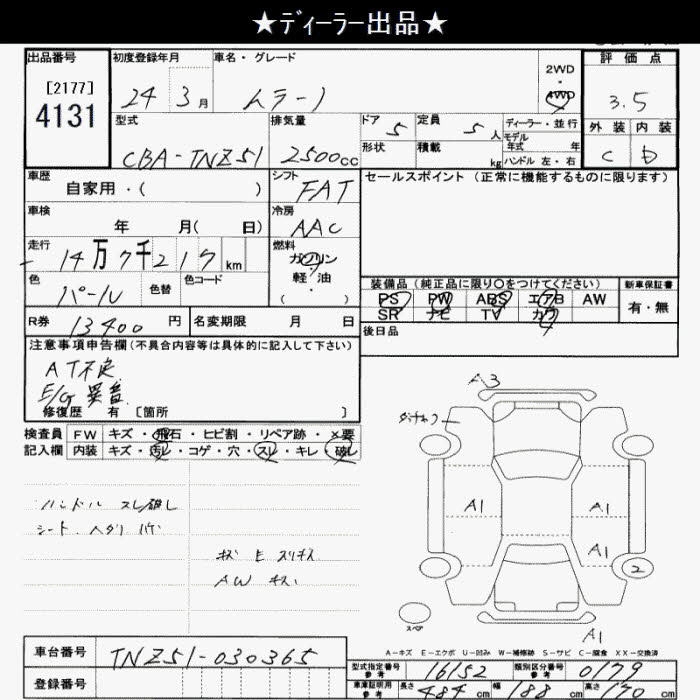 ★ディーラー出品★
出品番号
[2177]
4131
初度登録年月
24 3月
車名・グレード
ムラーノ
2WD
・
4WD
評価点
3.5
外装 内装
C D
型式
CBA-TNZ51
排気量
2500cc
ドア 5
形状
定員 5人
積載 kg
ディーラー・並行
モデル
年式 年
ハンドル 左・右
車歴
自家用・( )
シフト
FAT
セールスポイント (正常に機能するものに限ります)
車検
年 月( 日)
冷房
AAC
走行
14万7千217km
燃料
ガソリン
軽・油
( ・ )
色
パール
色替
色コード
装備品 (純正品に限り○をつけてください)
PS PW ABS エアB AW
SR ナビ TV カワ
4
新車保証書
有・無
R券 13400円
名変期限 月 日
後日品
注意事項申告欄(不具合内容等は具体的に記入して下さい)
AT不良
E/G異音
修復歴 有 [箇所 ]
検査員
記入欄
FW キズ・飛石・ヒビ割・リペア跡・×要
内装 キズ・汚レ・コゲ・穴・スレ・キレ・破レ
ハンドル スレ破レ
シート
AW キズ
A3
A1
A1
A1
2
スペア
A-キズ E-エクボ U-凹み W-補修跡 S-サビ C-腐食 XX-交換済
車台番号 TNZ51-030365
登録番号
型式指定番号
参考
16152
類別区分番号
参考
0179
車庫証明用
参考
長さ 484cm
幅 188cm
高さ 170cm